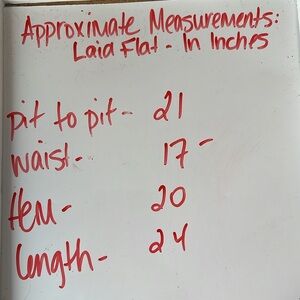 Approximate Measurements:
Laid Flat - In Inches
pit to pit - 21
waist - 17 -
Hem - 20
length - 24